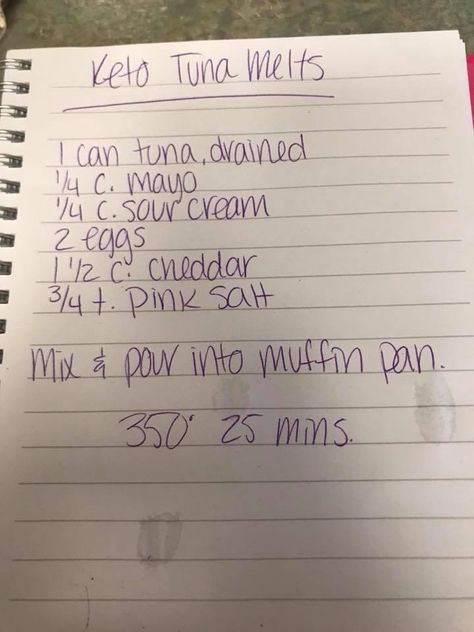 Keto Tuna Melts
1 can tuna, drained
1/4 c. mayo
1/4 c. sour cream
2 eggs
1 1/2 c. cheddar
3/4 t. pink salt
Mix & pour into muffin pan.
350° 25 mins.